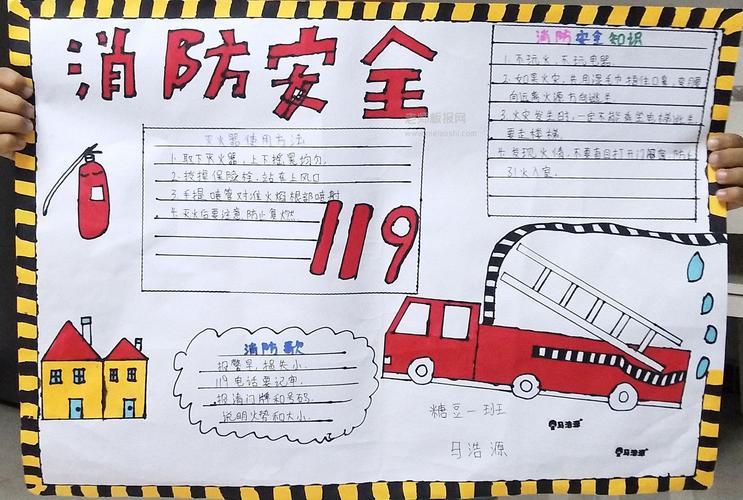 消防安全
消防安全知识
1.不玩火,不玩电器
2.如果火灾,共用湿毛巾捂住口鼻,弯腰
向远离火源方向逃生
3.火灾发生时,一定不能乘坐电梯逃生
要走楼梯.
4.发现火情,不要盲目打开门窗,防止
引火入室.
灭火器使用方法
1.取下灭火器,上下摇晃均匀.
2.拔掉保险栓,站在上风口
3.手提喷管对准火焰根部喷射
4.灭火后要注意防止复燃.
119
消防歌
报警早,损失小.
119电话要记牢.
报清门牌和号码.
说明火势和大小.
糖豆一班
马浩源
马浩源
马浩源